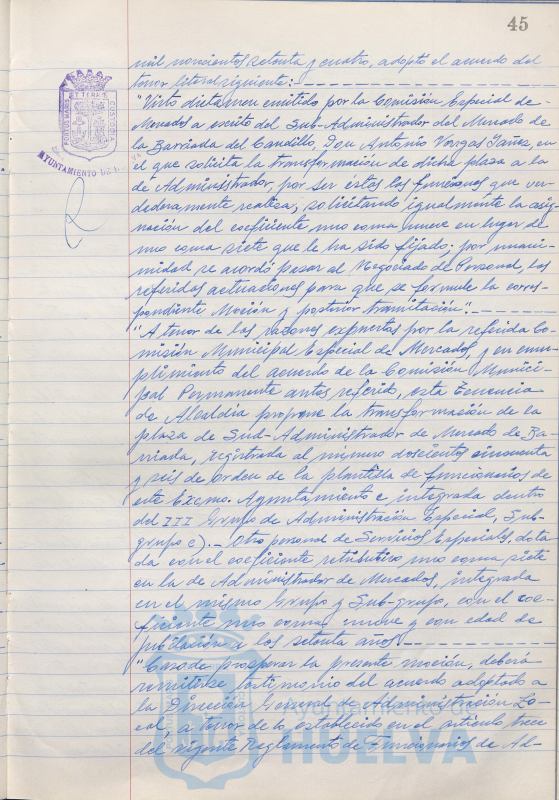 45
mil novecientos setenta y cuatro, adoptó el acuerdo del
tenor literal siguiente:
"Visto dictamen emitido por la Comisión Especial de
Mercados a escrito del Sub-Administrador del Mercado de
la Barriada del Caudillo, Don Antonio Vargas Yañez, en
el que solicita la transformación de dicha plaza a la
de Administrador, por ser éstas las funciones que ver-
daderamente realiza, solicitando igualmente la asig-
nación del coeficiente uno coma nueve en lugar de
uno coma siete que le ha sido fijado; por unani-
midad se acordó pasar al Negociado de Personal, las
referidas actuaciones para que se formule la corres-
pondiente Moción y posterior tramitación".
"A tenor de las razones expuestas por la referida Co-
misión Municipal Especial de Mercados, y en cum-
plimiento del acuerdo de la Comisión Munici-
pal Permanente antes referido, esta Tenencia
de Alcaldía propone la transformación de la
plaza de Sud-Administrador de Mercado de Ba-
rriada, registrada al número doscientos cincuenta
y seis de orden de la plantilla de funcionarios de
este Excmo. Ayuntamiento e integrada dentro
del III Grupo de Administración Especial, Sub-
grupo c).- Otro personal de Servicios Especiales, dota-
da con el coeficiente retributivo uno coma siete
en la de Administrador de Mercados, integrada
en el mismo Grupo y Sub-grupo, con el coe-
ficiente uno coma nueve y con edad de
jubilación a los setenta años
"Caso de prosperar la presente moción, deberá
remitirse testimonio del acuerdo adoptado a
la Dirección General de Administración Lo-
cal, a tenor de lo establecido en el artículo trece
del vigente Reglamento de Funcionarios de Ad-
AYUNTAMIENTO DE
HUELVA